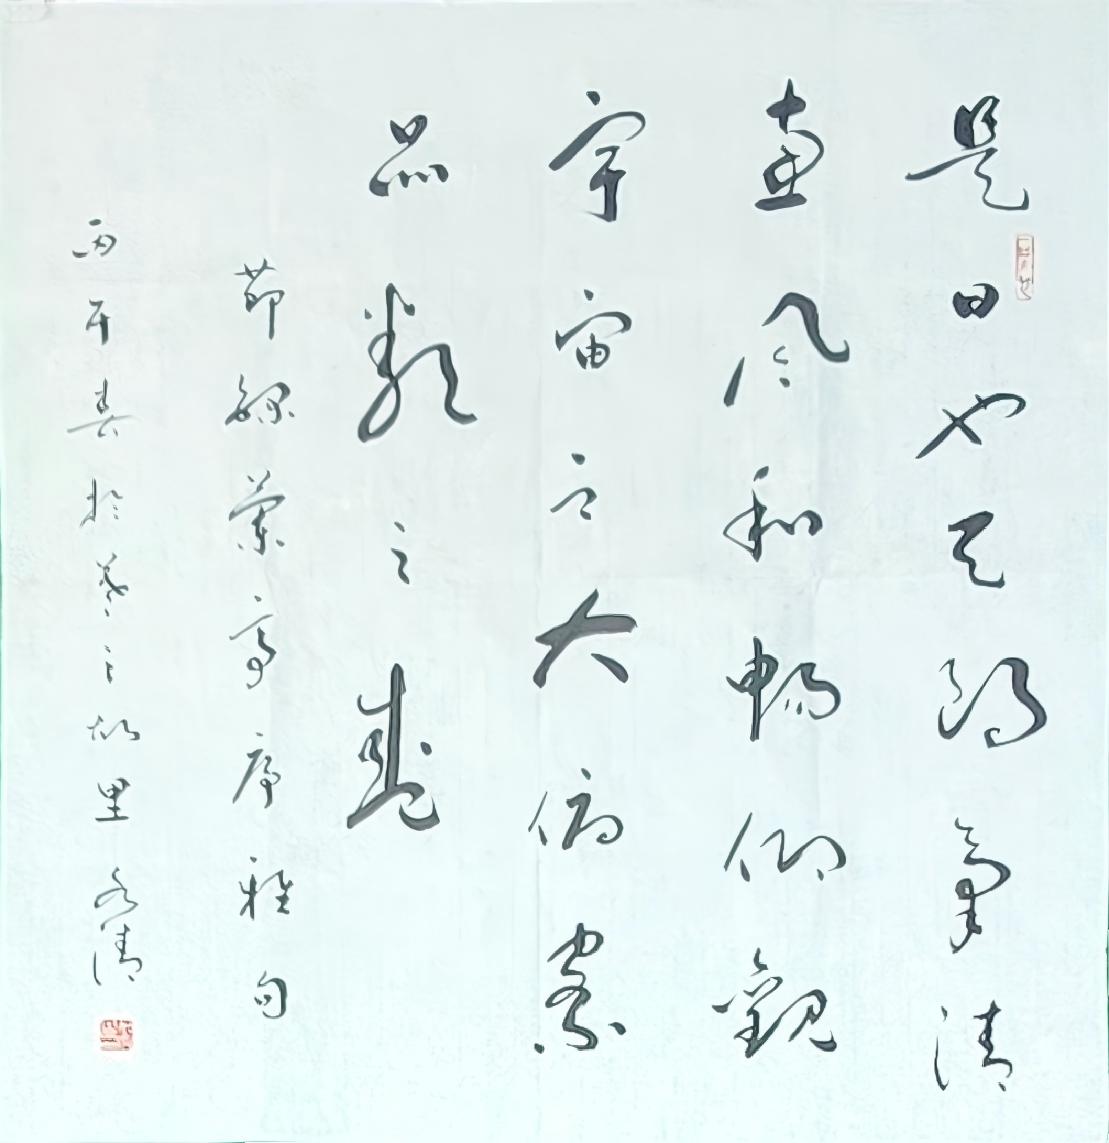 是日也天朗氣清
惠風和暢仰觀
宇宙之大俯察
品類之盛
節錄蘭亭序雅句
丙午春於羲之故里清